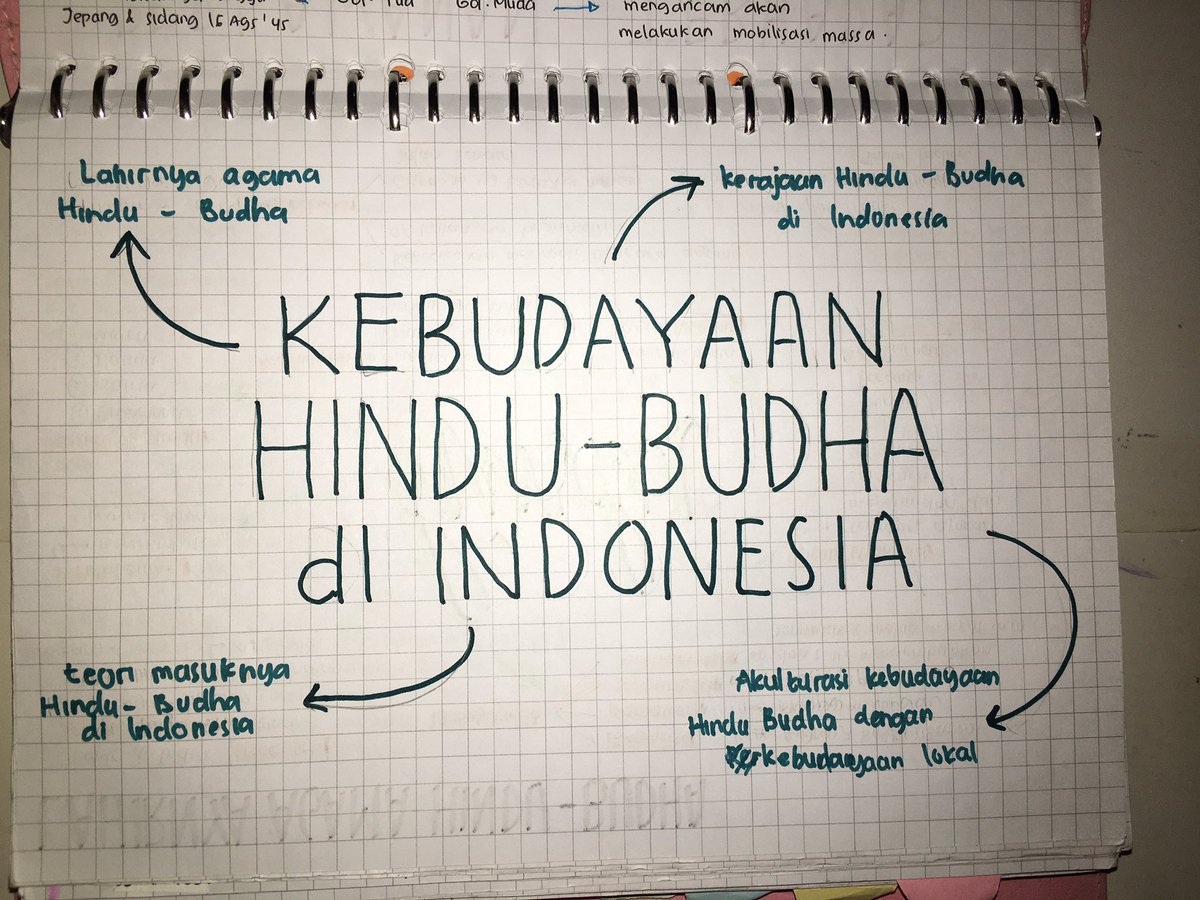 Gol. Muda → mengancam akan
Jepang & sidang 16 Ags '45
melakukan mobilisasi massa.
Lahirnya agama
Hindu - Budha
kerajaan Hindu - Budha
di Indonesia
KEBUDAYAAN
HINDU-BUDHA
dI INDONESIA
teori masuknya
Hindu - Budha
di Indonesia
Akulturasi kebudayaan
Hindu Budha dengan
kebudayaan lokal